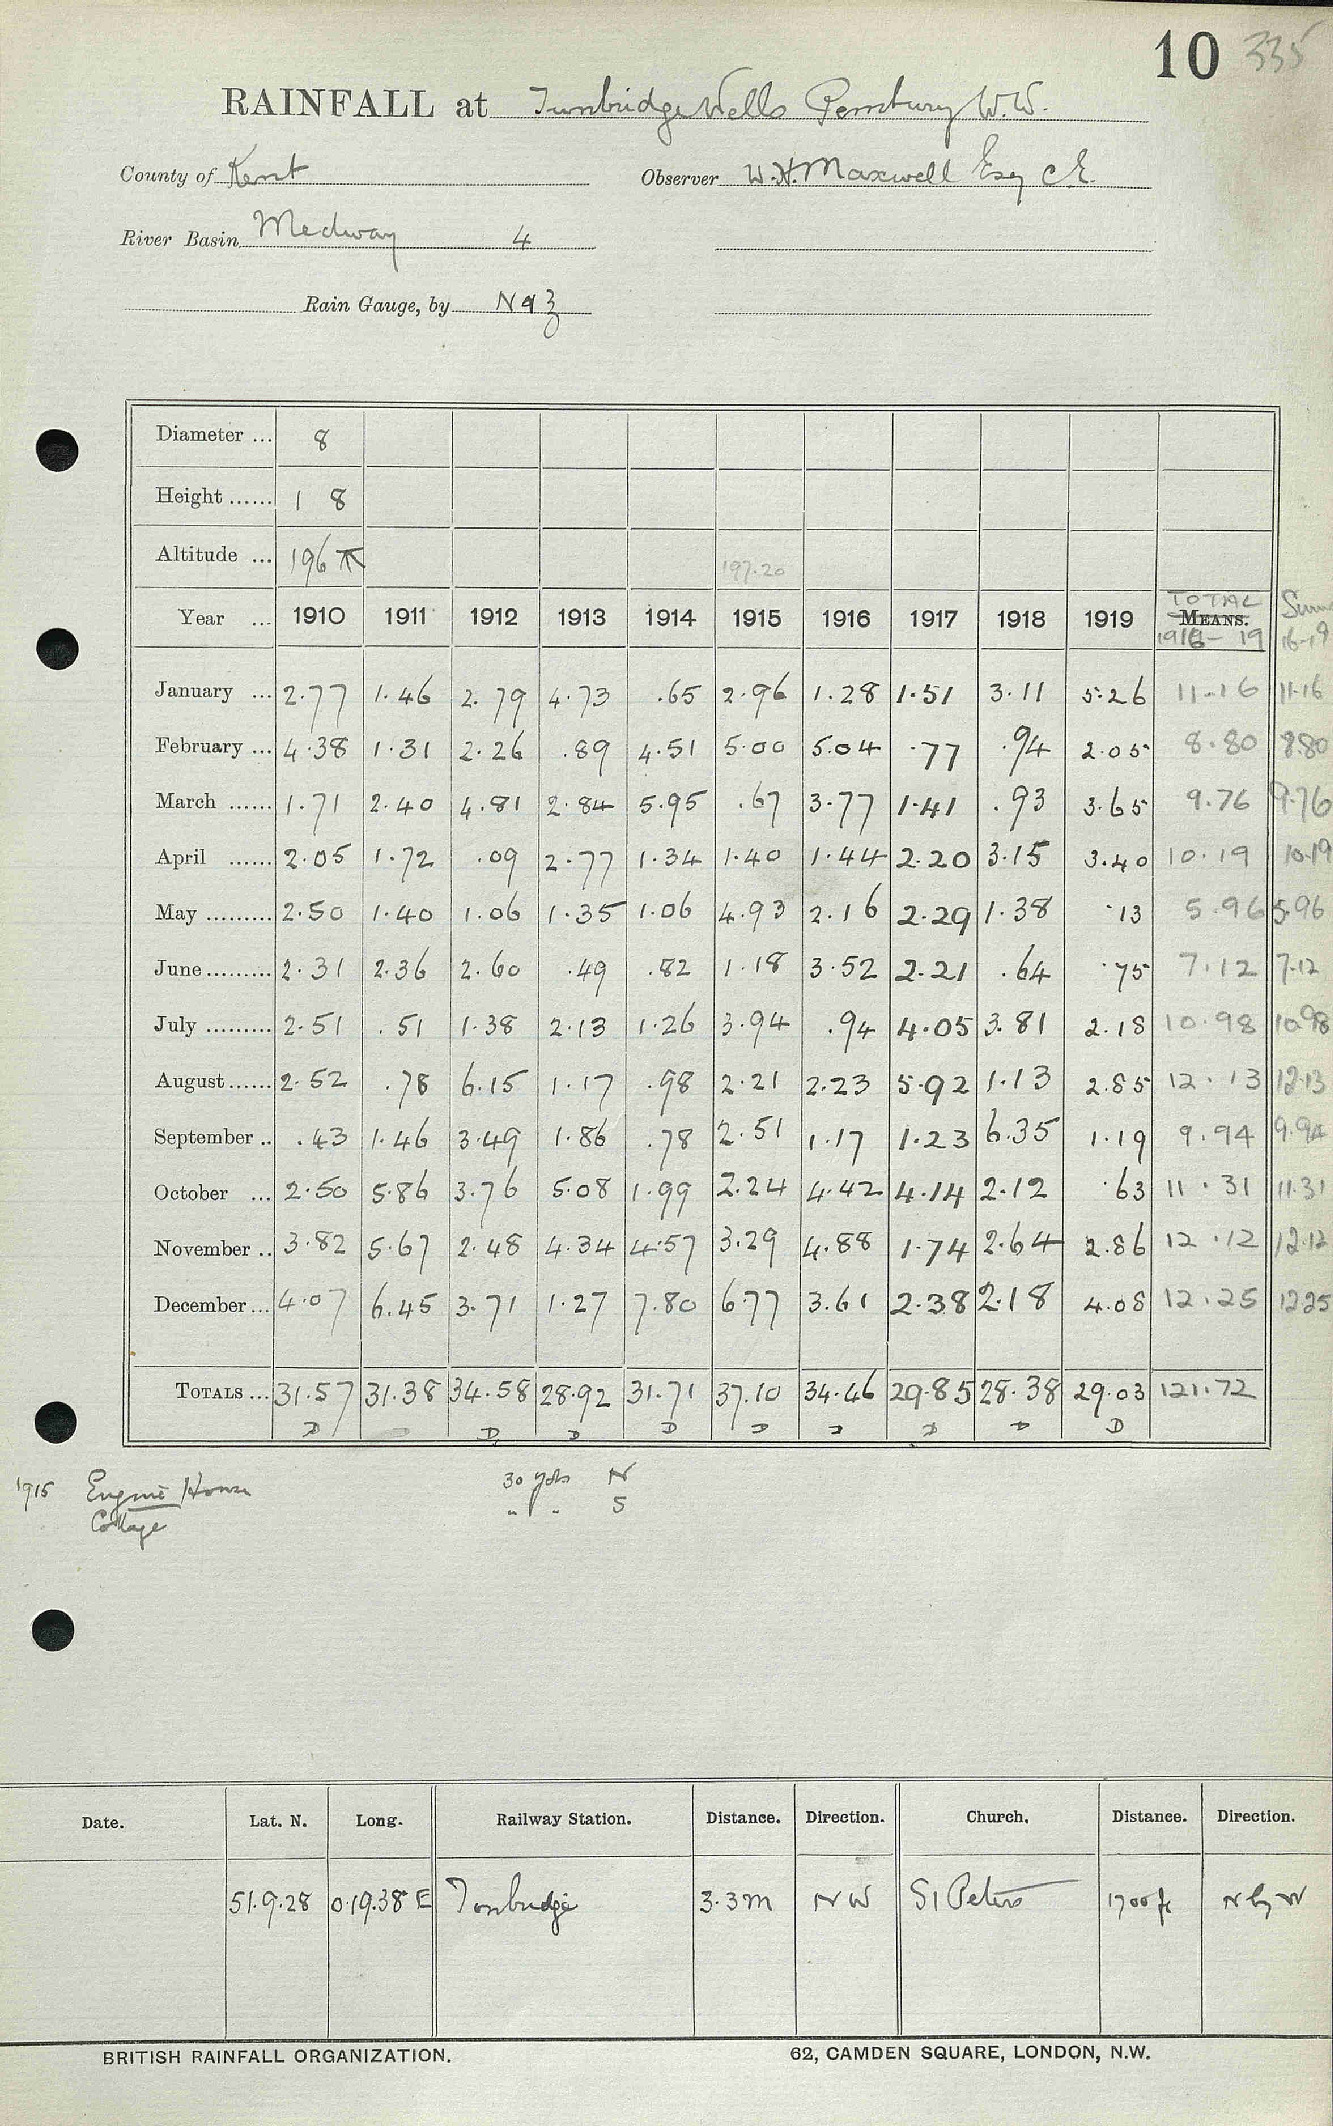 10 335
RAINFALL at Tunbridge Wells Pembury W.W.
County of Kent Observer W.H. Maxwell Esq C.E.
River Basin Medway 4
Rain Gauge, by N & Z
Diameter ... 8
Height ...... 1 8
Altitude ... 196 197.20
TOTAL
Year ... 1910 1911 1912 1913 1914 1915 1916 1917 1918 1919 MEANS.
1916-19 16-19
January ... 2.77 1.46 2.79 4.73 .65 2.96 1.28 1.51 3.11 5.26 11.16 11.16
February ... 4.38 1.31 2.26 .89 4.51 5.00 5.04 .77 .94 2.05 8.80 8.80
March ...... 1.71 2.40 4.81 2.84 5.95 .67 3.77 1.41 .93 3.65 9.76 9.76
April ...... 2.05 1.72 .09 2.77 1.34 1.40 1.44 2.20 3.15 3.40 10.19 10.19
May ......... 2.50 1.40 1.06 1.35 1.06 4.93 2.16 2.29 1.38 .13 5.96 5.96
June ......... 2.31 2.36 2.60 .49 .82 1.18 3.52 2.21 .64 .75 7.12 7.12
July ......... 2.51 .51 1.38 2.13 1.26 3.94 .94 4.05 3.81 2.18 10.98 10.98
August ...... 2.52 .78 6.15 1.17 .98 2.21 2.23 5.92 1.13 2.85 12.13 12.13
September .. .43 1.46 3.49 1.86 .78 2.51 1.17 1.23 6.35 1.19 9.94 9.94
October ... 2.50 5.86 3.76 5.08 1.99 2.24 4.42 4.14 2.12 .63 11.31 11.31
November .. 3.82 5.67 2.48 4.34 4.57 3.29 4.88 1.74 2.64 2.86 12.12 12.12
December ... 4.07 6.45 3.71 1.27 7.80 6.77 3.61 2.38 2.18 4.08 12.25 12.25
TOTALS ... 31.57 31.38 34.58 28.92 31.71 37.10 34.46 29.85 28.38 29.03 121.72
D D D D D D D D D
1915 Engine House 30 yds N
Cottage " " S
Date. Lat. N. Long. Railway Station. Distance. Direction. Church. Distance. Direction.
51.9.28 0.19.38 E Tonbridge 3.3 m NW St Peters 1700 ft N by W
BRITISH RAINFALL ORGANIZATION. 62, CAMDEN SQUARE, LONDON, N.W.